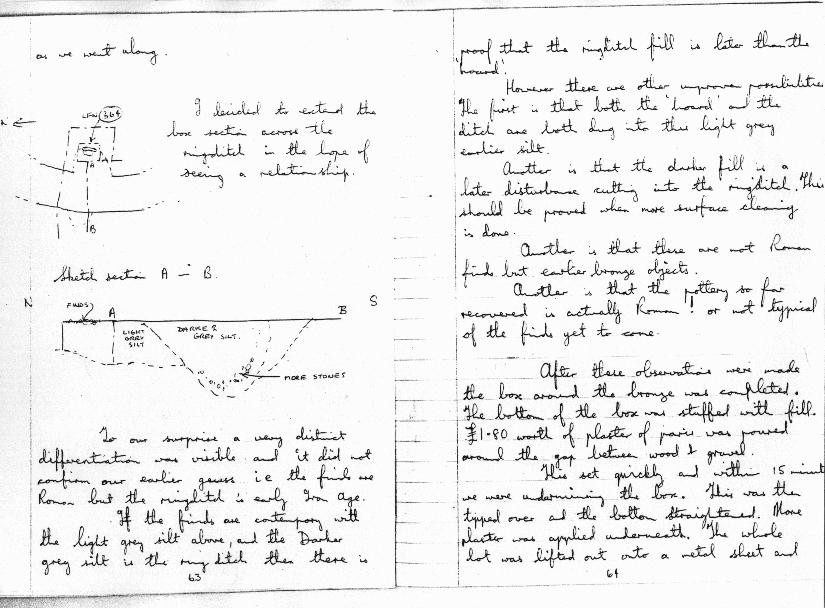 as we went along.
N ←
LFN 364
A
A
B
I decided to extend the
box section across the
ringditch in the hope of
seeing a relationship.
Sketch section A – B.
N
FINDS
A
B
S
LIGHT
GREY
SILT
DARKER
GREY SILT.
MORE STONES
To our surprise a very distinct
differentiation was visible and it did not
confirm our earlier guess i.e the finds are
Roman but the ringditch is early Iron Age.
If the finds are contempory with
the light grey silt above, and the Darker
grey silt is the ring ditch then there is
63
proof that the ringditch fill is later than the
'hoard'.
However there are other unproven possibilities
The first is that both the 'hoard' and the
ditch are both dug into this light grey
earlier silt.
Another is that the darker fill is a
later disturbance cutting into the ringditch. This
should be proved when more surface cleaning
is done.
Another is that these are not Roman
finds but earlier bronze objects.
Another is that the pottery so far
recovered is actually Roman! or not typical
of the finds yet to come.
After these observations were made
the box around the bronze was completed.
The bottom of the box was stuffed with fill.
£1.80 worth of plaster of paris was poured
around the gap between wood & gravel.
This set quickly and within 15 minut
we were undermining the box. This was then
tipped over and the bottom straightened. More
plaster was applied underneath. The whole
lot was lifted out onto a metal sheet and
64